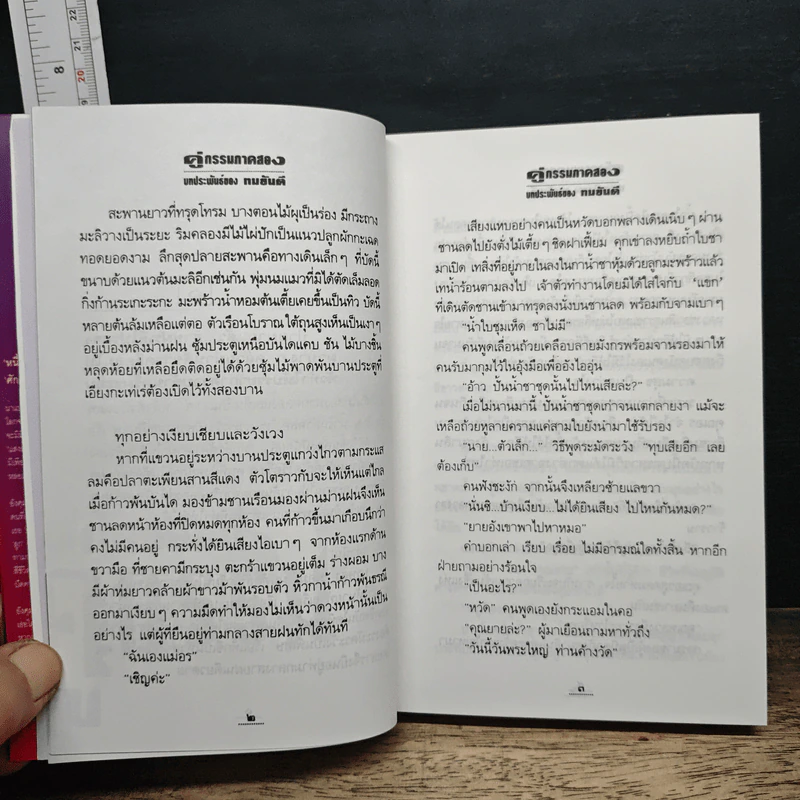 คู่กรรมภาคสอง
บทประพันธ์ของ ทมยันตี
สะพานยาวที่ทรุดโทรม บางตอนไม้ผุเป็นร่อง มีกระถาง
มะลิวางเป็นระยะ ริมคลองมีไม้ไผ่ปักเป็นแนวปลูกผักกะเฉด
ทอดยอดงาม ลึกสุดปลายสะพานคือทางเดินเล็กๆ ที่บัดนี้
ขนาบด้วยแนวต้นมะลิอีกเช่นกัน พุ่มนมแมวที่มิได้ตัดเล็มลอด
กิ่งก้านระเกะระกะ มะพร้าวน้ำหอมต้นเตี้ยเคยขึ้นเป็นทิว บัดนี้
หลายต้นล้มเหลือแต่ตอ ตัวเรือนโบราณใต้ถุนสูงเห็นเป็นเงาๆ
อยู่เบื้องหลังม่านฝน ซุ้มประตูเหนือบันไดแคบ ชัน ไม้บางชิ้น
หลุดห้อยที่เหลือยึดติดอยู่ได้ด้วยซุ้มไม้พาดพันบานประตูที่
เอียงกะเท่เร่ต้องเปิดไว้ทั้งสองบาน
ทุกอย่างเงียบเชียบและวังเวง
หากที่แขวนอยู่ระหว่างบานประตูแกว่งไกวตามกระแส
ลมคือปลาตะเพียนสานสีแดง ตัวโตราวกับจะให้เห็นแต่ไกล
เมื่อก้าวพ้นบันได มองข้ามชานเรือนมองผ่านม่านฝนจึงเห็น
ชานลดหน้าห้องที่ปิดหมดทุกห้อง คนที่ก้าวขึ้นมาเกือบนึกว่า
คงไม่มีคนอยู่ กระทั่งได้ยินเสียงไอเบาๆ จากห้องแรกด้าน
ขวามือ ที่ชายคามีกระบุง ตะกร้าแขวนอยู่เต็ม ร่างผอม บาง
มีผ้าห่มยาวคล้ายผ้าขาวม้าพันรอบตัว หิ้วกาน้ำก้าวพ้นธรณี
ออกมาเงียบๆ ความมืดทำให้มองไม่เห็นว่าดวงหน้านั้นเป็น
อย่างไร แต่ผู้ที่ยืนอยู่ท่ามกลางสายฝนทักได้ทันที
“ฉันเองแม่อร”
“เชิญค่ะ”
๒
คู่กรรมภาคสอง
บทประพันธ์ของ ทมยันตี
เสียงแหบอย่างคนเป็นหวัดบอกพลางเดินเนิบๆ ผ่าน
ชานลดไปยังตั่งไม้เตี้ยๆ ชิดฝาเฟี้ยม คุกเข่าลงหยิบถ้ำใบชา
มาเปิด เทสิ่งที่อยู่ภายในลงในกาน้ำชาหุ้มด้วยลูกมะพร้าวแล้ว
เทน้ำร้อนตามลงไป เจ้าตัวทำงานโดยมิได้ใส่ใจกับ ‘แขก’
ที่เดินตัดชานเข้ามาทรุดลงนั่งบนชานลด พร้อมกับจามเบาๆ
“น้ำใบชุมเห็ด ชาไม่มี”
คนพูดเลื่อนถ้วยเคลือบลายมังกรพร้อมจานรองมาให้
คนรับมากุมไว้ในอุ้งมือเพื่ออังไออุ่น
“อ้าว ปั้นน้ำชาชุดนั้นไปไหนเสียล่ะ?”
เมื่อไม่นานมานี้ ปั้นน้ำชาชุดเก่าจนแตกลายงา แม้จะ
เหลือถ้วยหูลายครามแค่สามใบยังนำมาใช้รับรอง
“นาย...ตัวเล็ก...” วิธีพูดระมัดระวัง “ทุบเสียอีก เลย
ต้องเก็บ”
คนฟังชะงัก จากนั้นจึงเหลียวซ้ายแลขวา
“นั่นซิ...บ้านเงียบ...ไม่ได้ยินเสียง ไปไหนกันหมด?”
“ยายอังเขาพาไปหาหมอ”
คำบอกเล่า เรียบ เรื่อย ไม่มีอารมณ์ใดทั้งสิ้น หากอีก
ฝ่ายถามอย่างร้อนใจ
“เป็นอะไร?”
“หวัด” คนพูดเองยังกระแอมในคอ
“คุณยายล่ะ?” ผู้มาเยือนถามหาทั่วถึง
“วันนี้วันพระใหญ่ ท่านค้างวัด”
๓
8
22
21
20